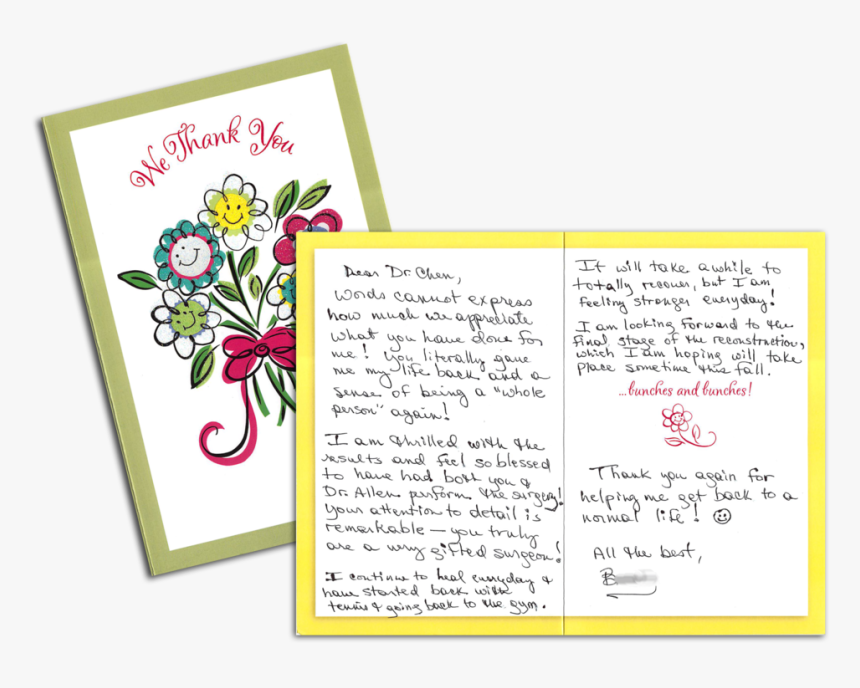 We Thank You
Dear Dr. Chen,
Words cannot express
how much we appreciate
what you have done for
me! You literally gave
me my life back and a
sense of being a "whole
person" again!
I am thrilled with the
results and feel so blessed
to have had both you &
Dr. Allen perform the surgery!
Your attention to detail is
remarkable — you truly
are a very gifted surgeon!
I continue to heal everyday &
have started back with
tennis & going back to the gym.
It will take awhile to
totally recover, but I am
feeling stronger everyday!
I am looking forward to the
final stage of the reconstruction,
which I am hoping will take
place sometime this fall.
...bunches and bunches!
Thank you again for
helping me get back to a
normal life! ☺
All the best,